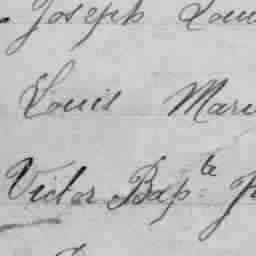 Joseph Lou
Louis Mari
Victor Bap.te